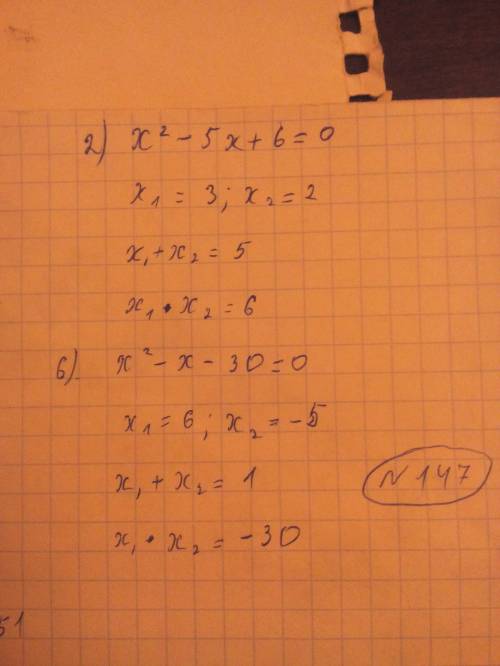 2) x² - 5x + 6 = 0
x₁ = 3; x₂ = 2
x₁ + x₂ = 5
x₁ • x₂ = 6
6) x² - x - 30 = 0
x₁ = 6; x₂ = -5
x₁ + x₂ = 1
N 147
x₁ • x₂ = -30
51